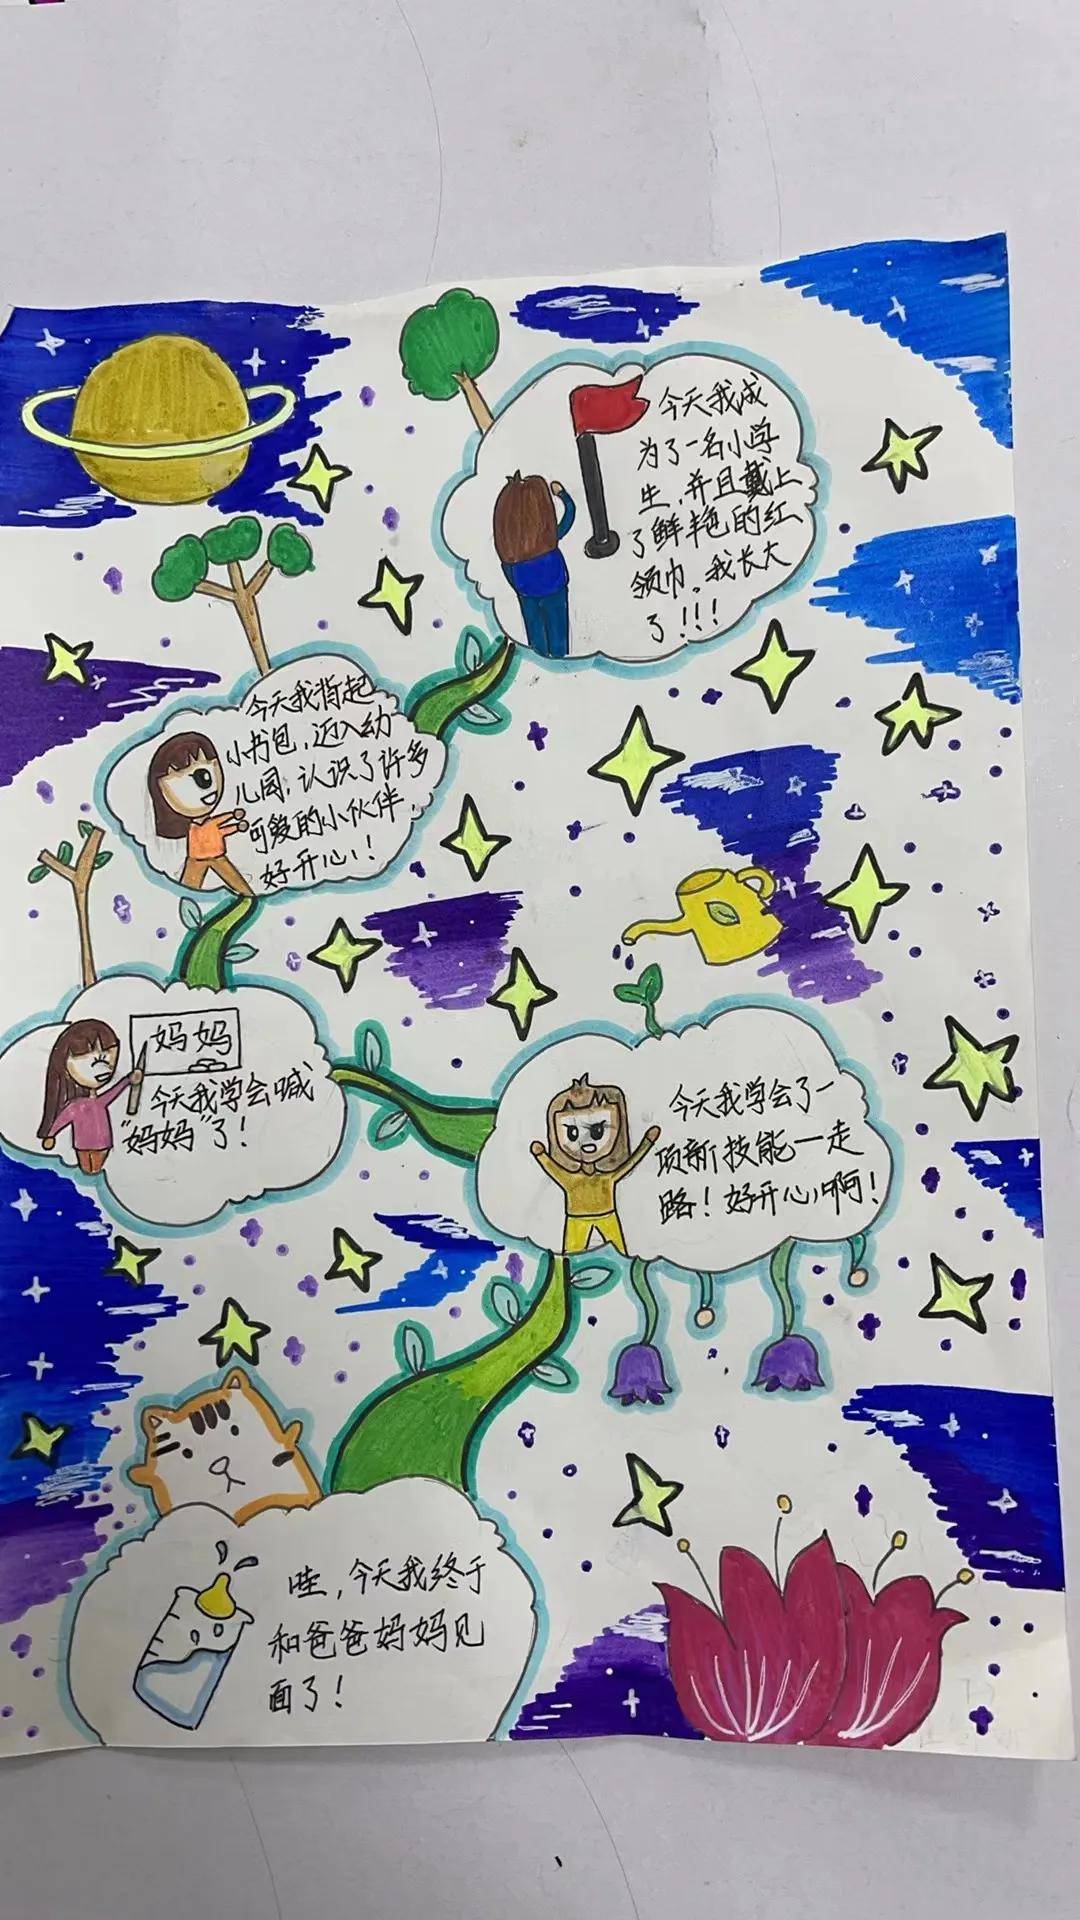 今天我成
为了一名小学
生，并且戴上
了鲜艳的红
领巾。我长大
了！！！
今天我背起
小书包，迈入幼
儿园，认识了许多
可爱的小伙伴，
好开心！！
妈妈
今天我学会喊
“妈妈”了！
今天我学会了一
项新技能—走
路！好开心啊！
哇，今天我终于
和爸爸妈妈见
面了！